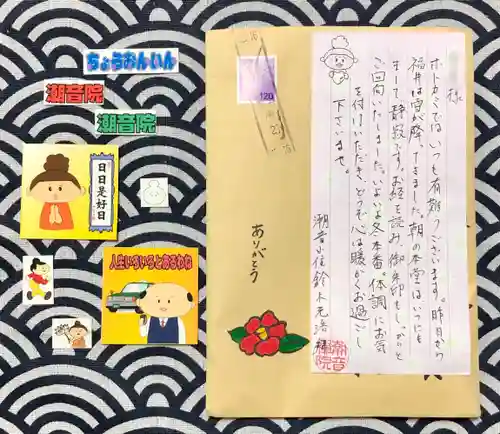 ちょうおんいん
潮音院
潮音院
日日是好日
人生いろいろとあるわな
120
ありがとう
様
ホトカミではいつも有難うございます。昨日から
福井は雪が降ってきました。朝の本堂はいつにも
まして静寂です。お経を読み、御朱印もしっかりと
ご回向いたしました。いよいよ冬本番。体調にお気
を付けいただき、どうぞ心は暖かくお過ごし
下さいませ。
潮音小住鈴木
潮音院